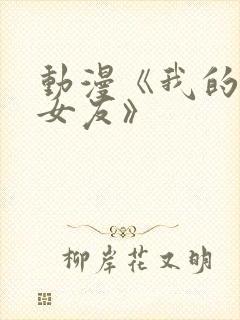 動漫《我的
女友》
柳岸花又明